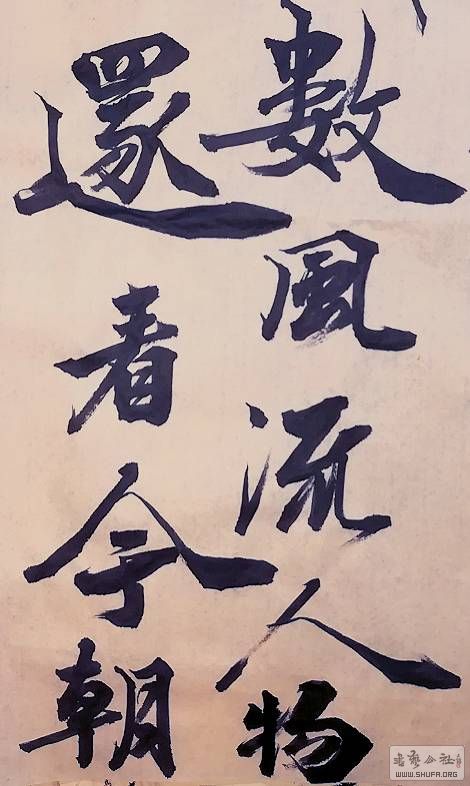 數風流人物
還看今朝
書藝公社
WWW.SHUFA.ORG